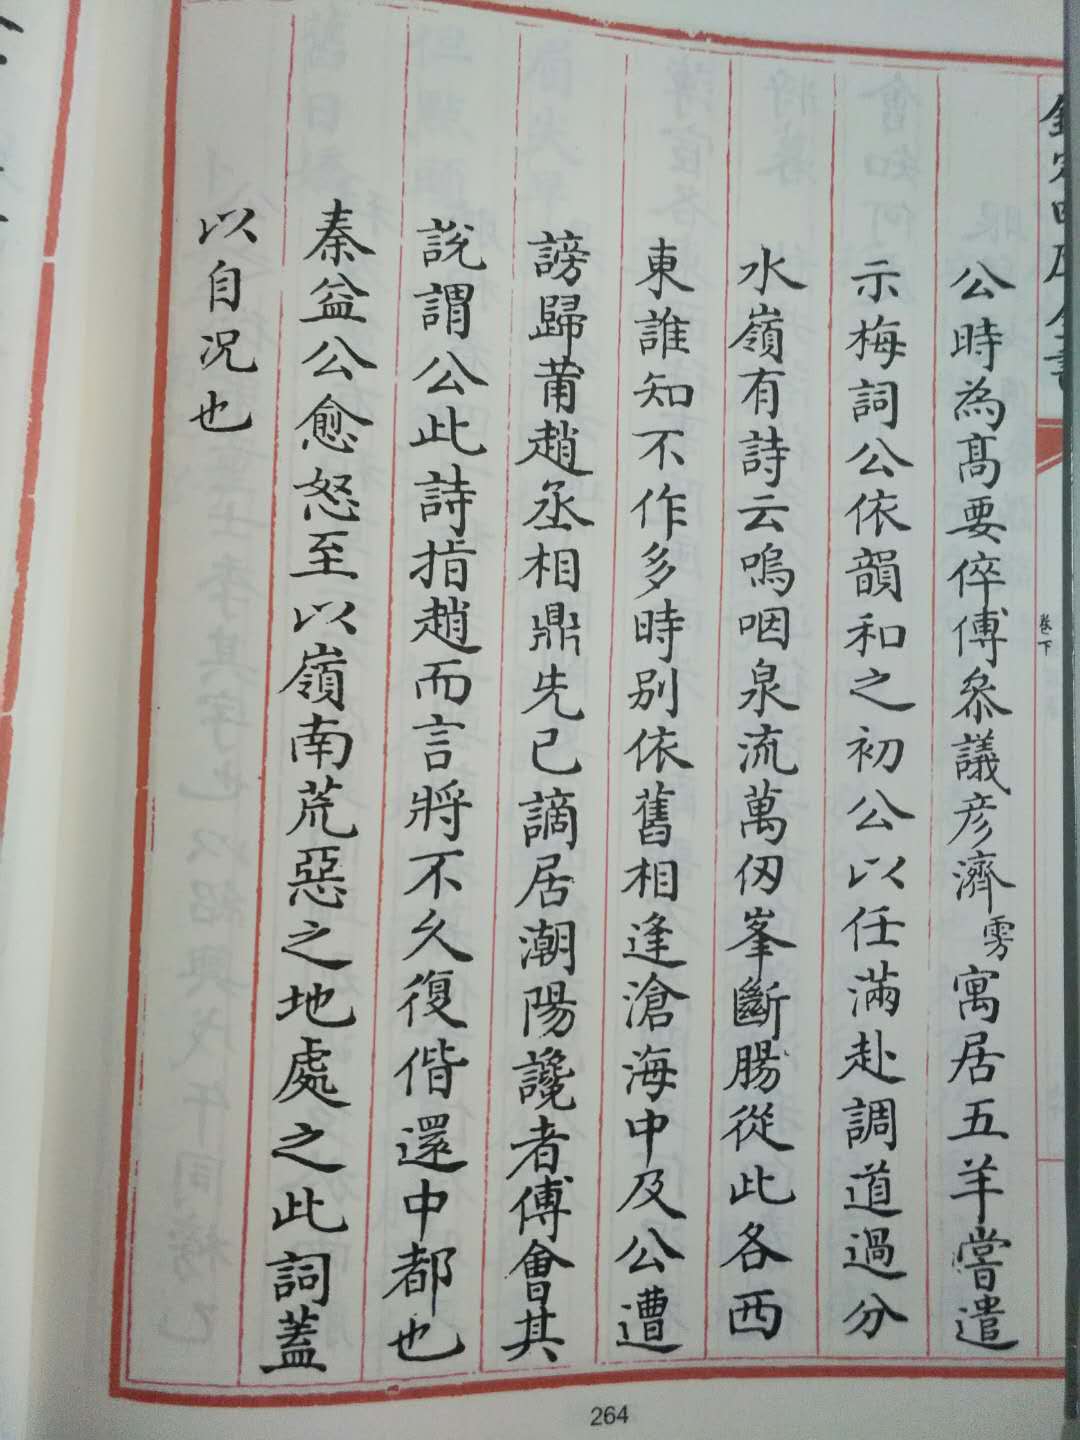 欽定四庫全書
卷下
公時為髙要倅傅叅議彦濟雱寓居五羊嘗遣
示梅詞公依韻和之初公以任滿赴調道過分
水嶺有詩云嗚咽泉流萬仭峯斷腸從此各西
東誰知不作多時别依舊相逢滄海中及公遭
謗歸莆趙丞相鼎先已謫居潮陽讒者傅會其
說謂公此詩指趙而言將不久復偕還中都也
秦益公愈怒至以嶺南荒惡之地處之此詞蓋
以自况也
264